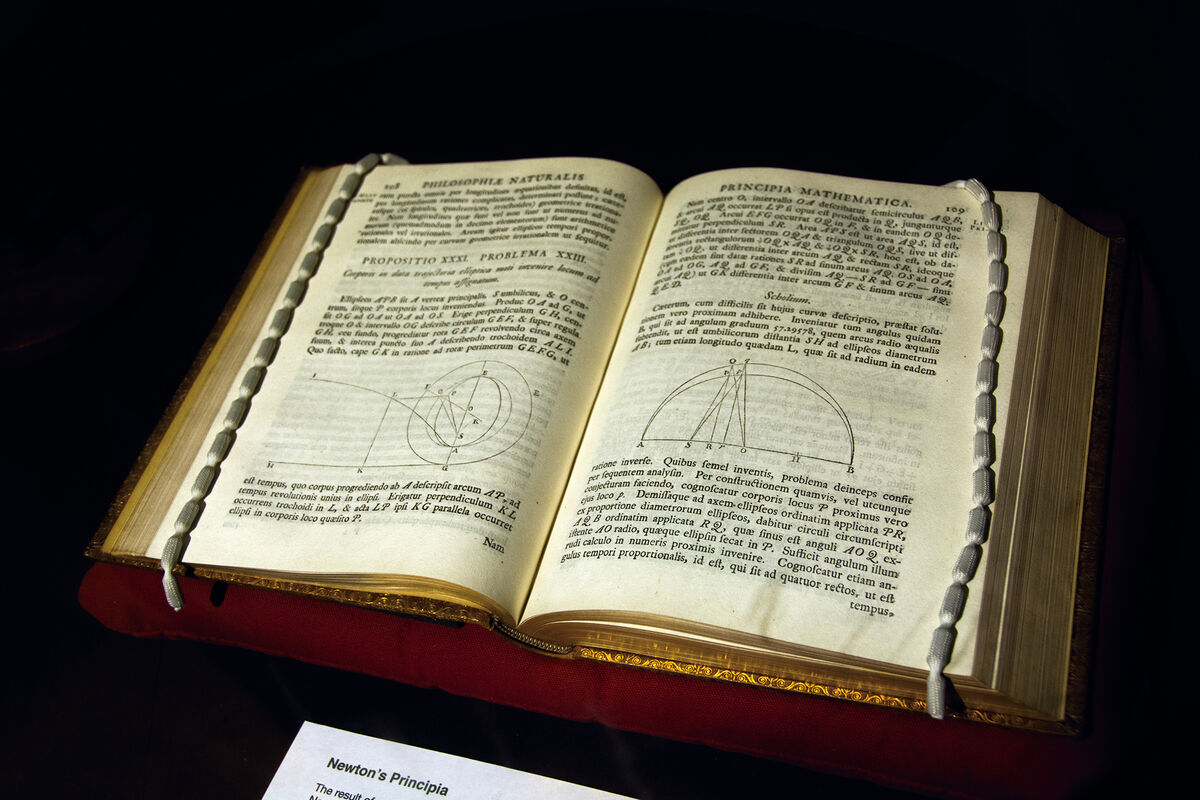 108 PHILOSOPHIÆ NATURALIS
rum puncta omnia per longitudines æquationibus definitas, id est,
per longitudinum rationes complicatas, determinari possunt; cæteras-
que (ut spirales, quadratrices, trochoides) geometrice irrationales.
Nam longitudines quæ sunt vel non sunt ut numerus ad nu-
merum (quemadmodum in decimo elementorum) sunt arithmetice
rationales vel irrationales. Aream igitur ellipseos tempori propor-
tionalem abscindo per curvam geometrice irrationalem ut sequitur.
PROPOSITIO XXXI. PROBLEMA XXIII.
Corporis in data trajectoria elliptica moti invenire locum ad
tempus assignatum.
Ellipseos APB sit A vertex principalis, S umbilicus, & O cen-
trum, sitque P corporis locus inveniendus. Produc OA ad G, ut
sit OG ad OA ut OA ad OS. Erige perpendiculum GH, cen-
troque O & intervallo OG describe circulum GEF, & super regula
GH, ceu fundo, progrediatur rota GEF revolvendo circa axem
suum, & interea puncto suo A describendo trochoidem ALI.
Quo facto, cape GK in ratione ad rotæ perimetrum GEFG, ut
I
L
F
B
E
P
O
K
S
A
H
K
G
est tempus, quo corpus progrediendo ab A descripsit arcum AP, ad
tempus revolutionis unius in ellipsi. Erigatur perpendiculum KL
occurrens trochoidi in L, & acta LP ipsi KG parallela occurret
ellipsi in corporis loco quæsito P.
Nam
PRINCIPIA MATHEMATICA. 109
Nam centro O, intervallo OA describatur semicirculus AQB,
& arcui AQ occurrat LP si opus est producta in Q, junganturque
SQ, OQ. Arcui EFG occurrat OQ in F, & in eandem OQ de-
mittatur perpendiculum SR. Area APS est ut area AQS, id est,
ut differentia inter sectorem OQA & triangulum OQS, sive ut diffe-
rentia rectangulorum ½OQ×AQ & ½OQ×SR, hoc est, ob da-
tam ½OQ, ut differentia inter arcum AQ & rectam SR, ideoque
OA ad OG, AQ ad GF, & divisim AQ—SR ad GF— sinu
arcus AQ) ut GK differentia inter arcum GF & sinum arcus AQ.
Q.E.D.
Scholium.
Cæterum, cum difficilis sit hujus curvæ descriptio, præstat solu-
tionem vero proximam adhibere. Inveniatur tum angulus quidam
B, qui sit ad angulum graduum 57,29578, quem arcus radio æqualis
subtendit, ut est umbilicorum distantia SH ad ellipseos diametrum
AB; tum etiam longitudo quædam L, quæ sit ad radium in eadem
Q q
P p
A S R r O H B
ratione inverse. Quibus semel inventis, problema deinceps confit
per sequentem analysin. Per constructionem quamvis, vel utcunque
conjecturam faciendo, cognoscatur corporis locus P proximus vero
ejus loco p. Demissaque ad axem ellipseos ordinatim applicata PR,
ex proportione diametrorum ellipseos, dabitur circuli circumscripti
AQB ordinatim applicata RQ, quæ sinus est anguli AOQ ex-
istente AO radio, quæque ellipsin secat in P. Sufficit angulum illum
rudi calculo in numeris proximis invenire. Cognoscatur etiam an-
gulus tempori proportionalis, id est, qui sit ad quatuor rectos, ut est
tempus,
Newton's Principia
The result of